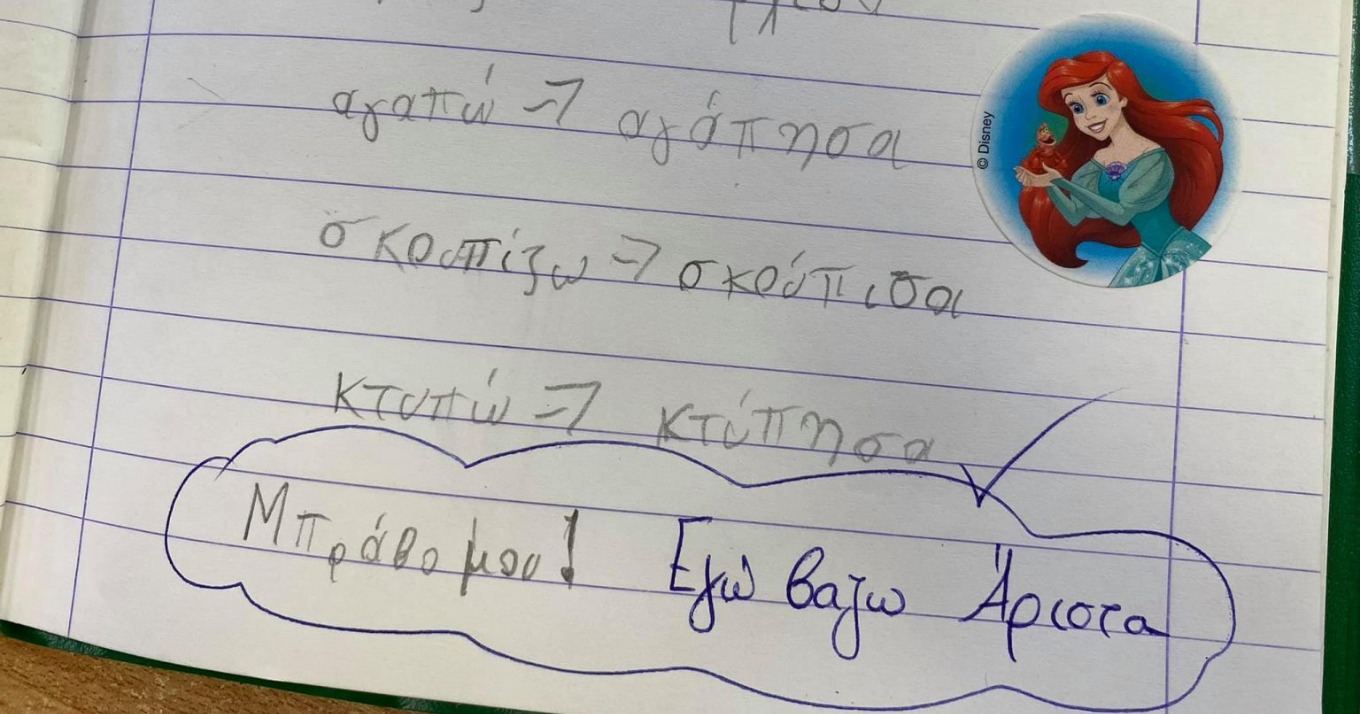 αγαπώ => αγάπησα
© Disney
σκουπίζω => σκούπισα
κτυπώ => κτύπησα
Μπράβο μου! Εγώ βαζω Άριστα